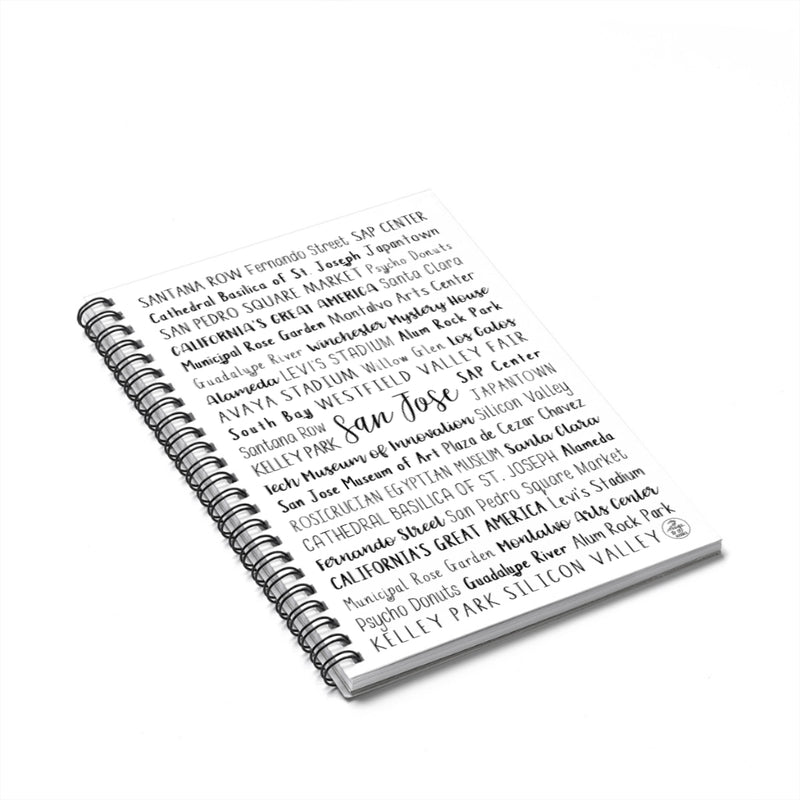 SANTANA ROW Fernando Street SAP CENTER
Cathedral Basilica of St. Joseph Japantown
SAN PEDRO SQUARE MARKET Psycho Donuts
CALIFORNIA'S GREAT AMERICA Santa Clara
Municipal Rose Garden Montalvo Arts Center
Guadalupe River Winchester Mystery House
Alameda LEVI'S STADIUM Alum Rock Park
AVAYA STADIUM Willow Glen Los Gatos
South Bay WESTFIELD VALLEY FAIR
Santana Row San Jose SAP Center
KELLEY PARK JAPANTOWN
Tech Museum of Innovation Silicon Valley
San Jose Museum of Art Plaza de Cezar Chavez
ROSICRUCIAN EGYPTIAN MUSEUM Santa Clara
CATHEDRAL BASILICA OF ST. JOSEPH Alameda
Fernando Street San Pedro Square Market
CALIFORNIA'S GREAT AMERICA Levi's Stadium
Municipal Rose Garden Montalvo Arts Center
Psycho Donuts Guadalupe River Alum Rock Park
KELLEY PARK SILICON VALLEY